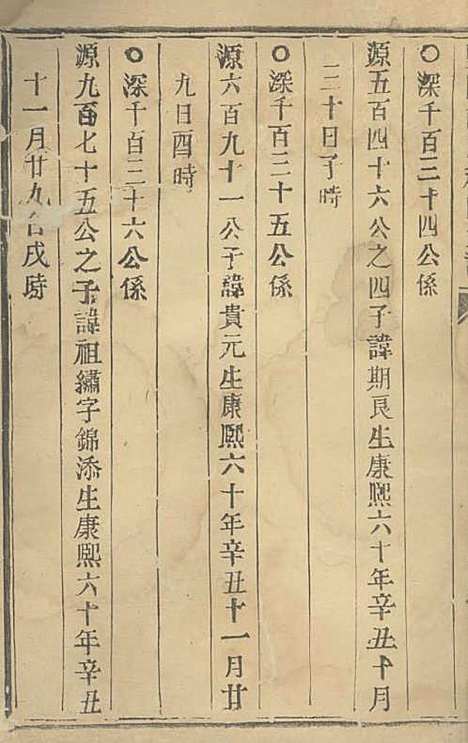 ○深千百三十四公係
源五百四十六公之四子諱期良生康熙六十年辛丑十月
三十日子時
○深千百三十五公係
源六百九十一公子諱貴元生康熙六十年辛丑十一月廿
九日酉時
○深千百三十六公係
源九百七十五公之子諱祖繡字錦添生康熙六十年辛丑
十一月廿九日戌時